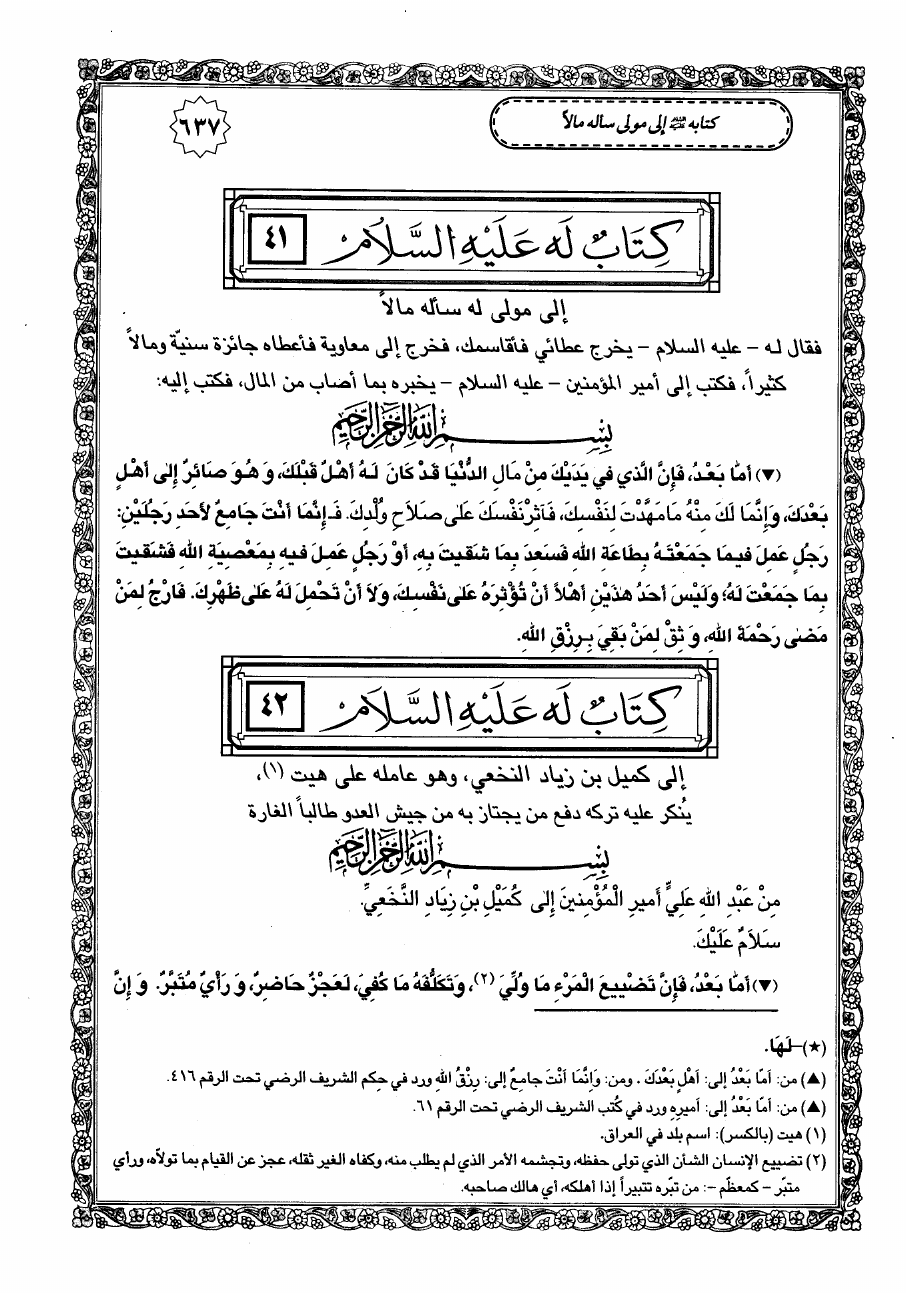 كتابه عليه السلام إلى مولى سأله مالاً
٦٣٧
كِتَابٌ لَه عَلَيْهِ السَّلَام
٤١
إلى مولى له سأله مالاً
فقال له – عليه السلام – يخرج عطائي فأقاسمك، فخرج إلى معاوية فأعطاه جائزة سنيّة ومالاً
كثيراً، فكتب إلى أمير المؤمنين – عليه السلام – يخبره بما أصاب من المال، فكتب إليه:
بِسْمِ اللهِ الرَّحْمٰنِ الرَّحِيمِ
(▼) أَمَّا بَعْدُ، فَإِنَّ الَّذي في يَدَيْكَ مِنْ مَالِ الدُّنْيَا قَدْ كَانَ لَهُ أَهْلٌ قَبْلَكَ، وَ هُوَ صَائِرٌ إِلى أَهْلٍ
بَعْدَكَ، وَإِنَّمَا لَكَ مِنْهُ مَا مَهَّدْتَ لِنَفْسِكَ، فَآثِرْ نَفْسَكَ عَلى صَلَاحِ وُلْدِكَ. فَإِنَّمَا أَنْتَ جَامِعٌ لأَحَدِ رَجُلَيْنِ:
رَجُلٍ عَمِلَ فيمَا جَمَعْتَهُ بِطَاعَةِ اللهِ فَسَعِدَ بِمَا شَقيتَ بِهِ، أَوْ رَجُلٍ عَمِلَ فيهِ بِمَعْصِيَةِ اللهِ فَشَقيتَ
بِمَا جَمَعْتَ لَهُ؛ وَلَيْسَ أَحَدُ هٰذَيْنِ أَهْلاً أَنْ تُؤْثِرَهُ عَلى نَفْسِكَ، وَلَا أَنْ تَحْمِلَ لَهُ عَلى ظَهْرِكَ. فَارْجُ لِمَنْ
مَضى رَحْمَةَ اللهِ، وَ ثِقْ لِمَنْ بَقِيَ بِرِزْقِ اللهِ.
كِتَابٌ لَه عَلَيْهِ السَّلَام
٤٢
إلى كميل بن زياد النخعي، وهو عامله على هيت (١)،
يُنكر عليه تركه دفع من يجتاز به من جيش العدو طالباً الغارة
بِسْمِ اللهِ الرَّحْمٰنِ الرَّحِيمِ
مِنْ عَبْدِ اللهِ عَلِيٍّ أَميرِ الْمُؤْمِنينَ إِلى كُمَيْلِ بْنِ زِيَادِ النَّخَعِيِّ.
سَلَامٌ عَلَيْكَ.
(▼) أَمَّا بَعْدُ، فَإِنَّ تَضْييعَ الْمَرْءِ مَا وُلِّيَ (٢)، وَتَكَلُّفَهُ مَا كُفِيَ، لَعَجْزٌ حَاضِرٌ، وَ رَأْيٌ مُتَبَّرٌ. وَ إِنَّ
(★)–لَهَا.
(▲) من: أَمَّا بَعْدُ إلى: أَهْلٍ بَعْدَكَ. ومن: وَإِنَّمَا أَنْتَ جَامِعٌ إلى: رِزْقُ اللهِ ورد في حكم الشريف الرضي تحت الرقم ٤١٦.
(▲) من: أَمَّا بَعْدُ إلى: أميرِهِ ورد في كُتب الشريف الرضي تحت الرقم ٦١.
(١) هيت (بالكسر): اسم بلد في العراق.
(٢) تضييع الإنسان الشأن الذي تولى حفظه، وتجشمه الأمر الذي لم يطلب منه، وكفاه الغير ثقله، عجز عن القيام بما تولاّه، ورأي
متبّر – كمعظّم –: من تبّره تتبيراً إذا أهلكه، أي هالك صاحبه.